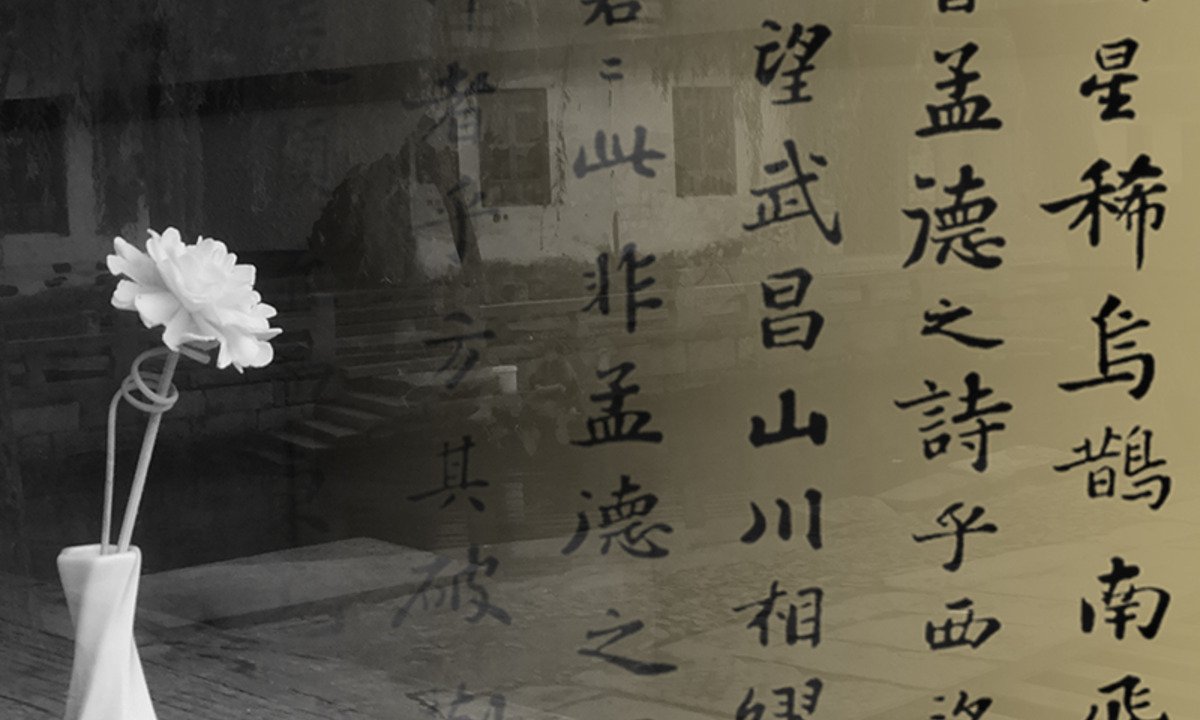 星稀烏鵲南飛
孟德之詩乎西
望武昌山川相繆
此非孟德之
者乎方其破